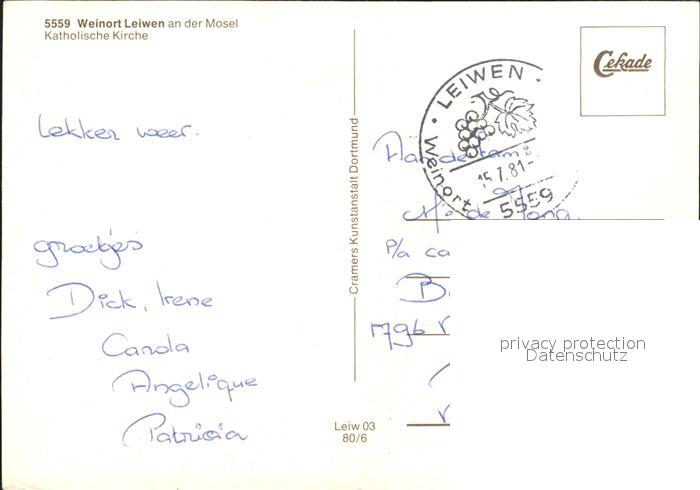 5559 Weinort Leiwen an der Mosel
Katholische Kirche
Lekker weer.
groetjes
Dick, Irene
Carola
Angelique
Patricia
Cramers Kunstanstalt Dortmund
Leiw 03
80/6
Cekade
LEIWEN
Weinort
15.7.81-
5559
Aan de fam:
de Jong
P/a ca
privacy protection
Datenschutz